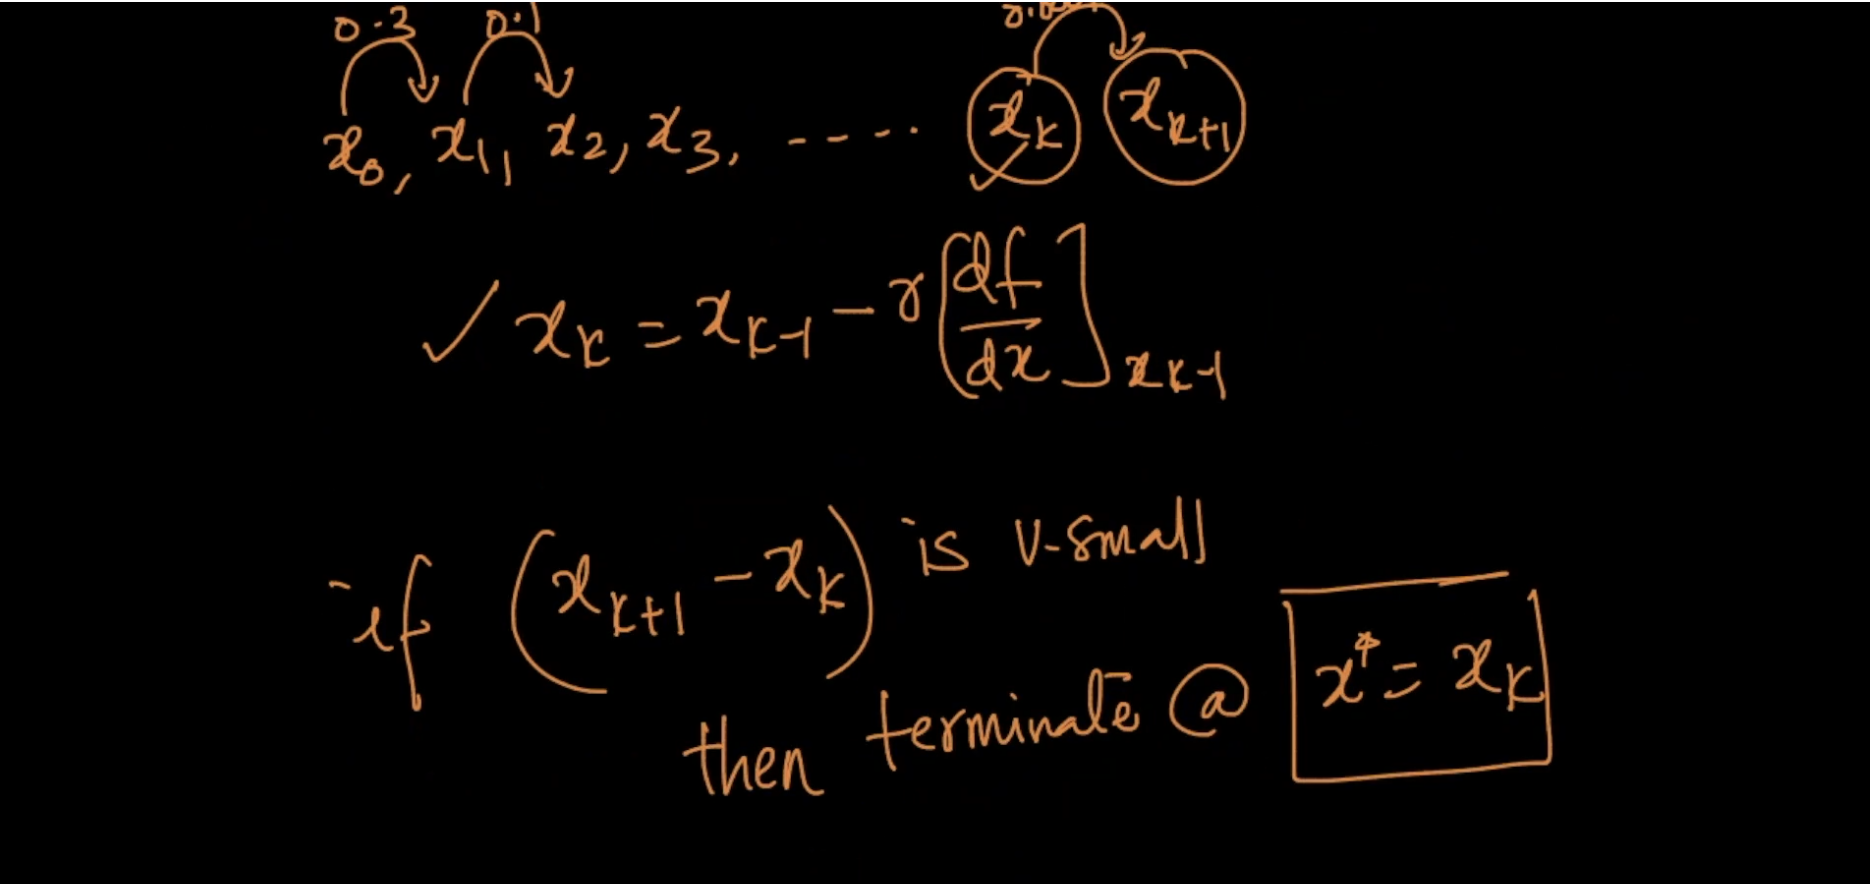 0.3 0.1
x₀, x₁, x₂, x₃, ---.. x_k x_{k+1}
✓ x_k = x_{k-1} - r [df/dx]_{x_{k-1}}
if (x_{k+1} - x_k) is v-small
then terminate @ x* = x_k